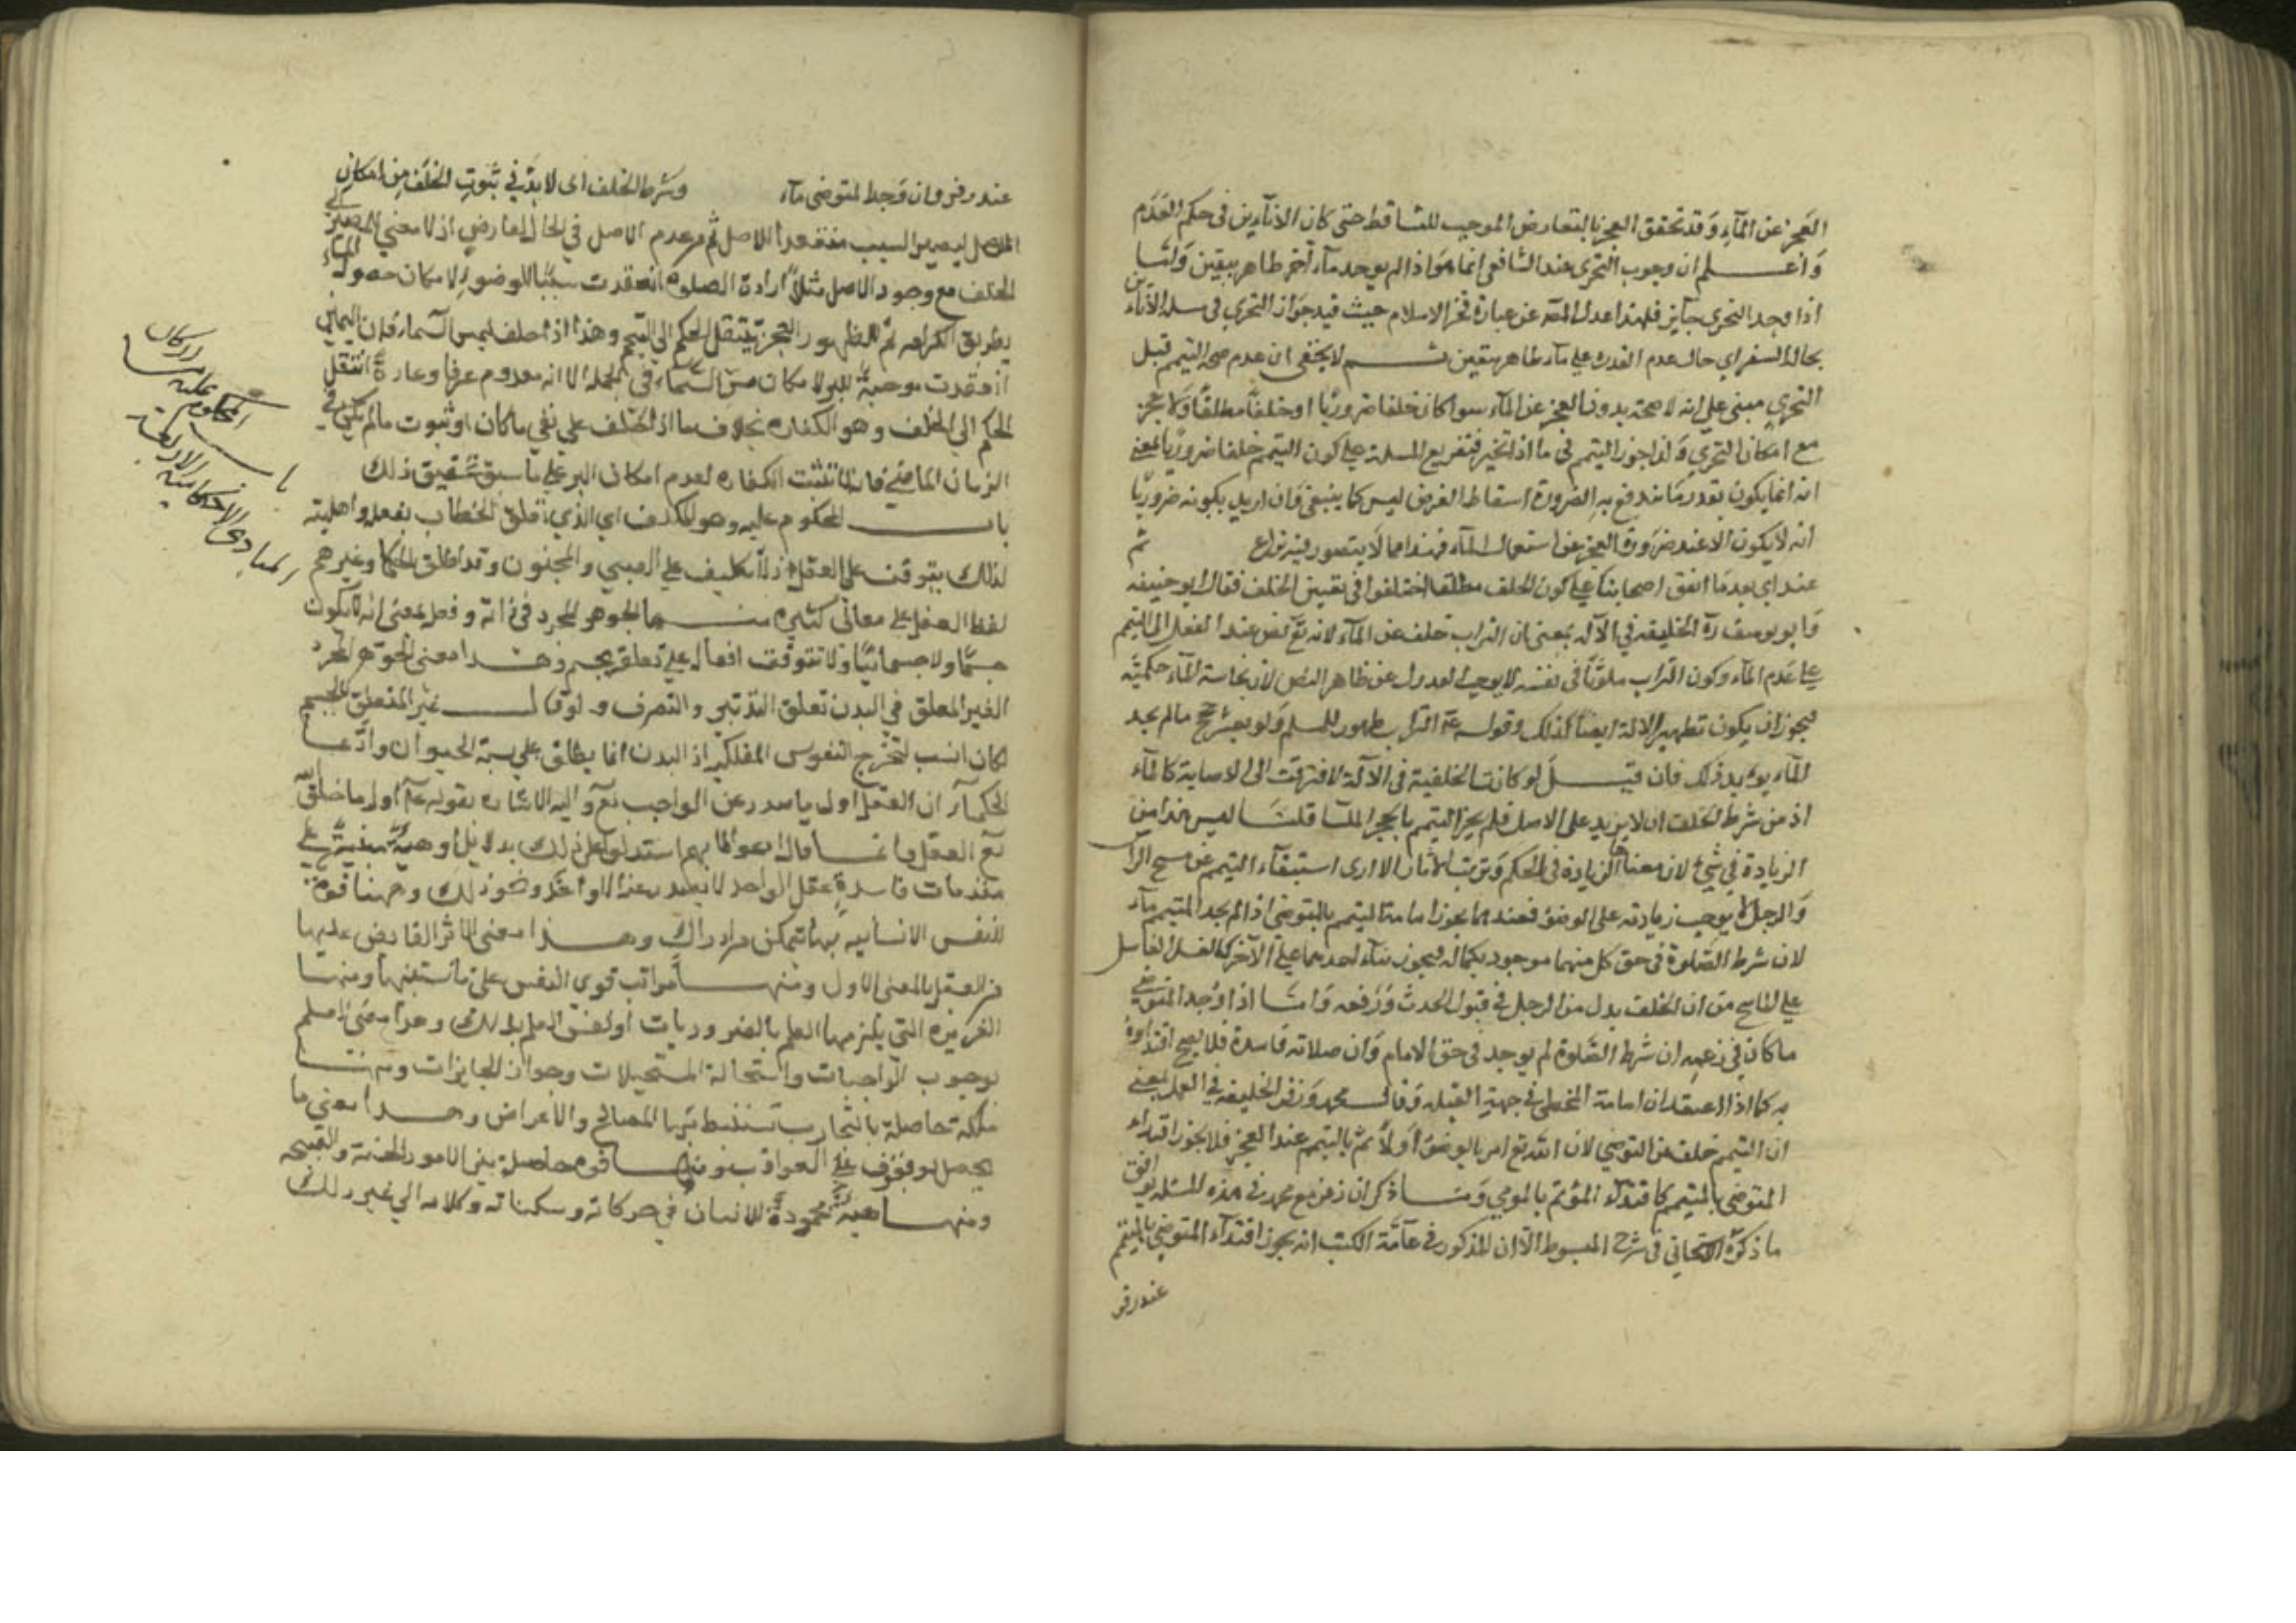 العجز عن المآء وقد تحقق العجز بالتعارض الموجب للتساقط حتى كان الانآءين فى حكم العدم
واعلم ان وجوب التحرى عند الشافعى انما هو اذا لم يوجد مآء آخر طاهر بيقين وامّا
اذا وجد التحرى جآيز فلهذا عدل المصه عن عبارة فخر الاسلام حيث قيد جواز التحرى فى مسئلة الانآءين
بحالة السفر اي حال عدم القدرة على مآء طاهر بيقين ثم لا يخفى ان عدم صحة التيمم قبل
التحري مبنى على انه لا صحة بدون العجز عن المآء سوا كان خلفا ضروريّا او خلفًا مطلقًا ولا عجز
مع امكان التحرّي ولذا جوز التيمم فى ما اذا تحير فتفريع المسلة على كون التيمم خلفا ضروريّا بمعنى
انه انما يكون بقدر ما يندفع به الضرورة اسقاط الفرض ليس كما ينبغى وان اريد بكونه ضروريّا
انّه لا يكون الا عند ضرورة العجز عن استعمال المآء فهذا مما لا يتصور فيه نزاع ثم
عند اي بعد ما اتفق اصحابنا على كون الخلف مطلقا اختلفوا فى تعيين الخلف فقال ابو حنيفه
وابو يوسف رة الخليفة في الآلة بمعنى ان التراب خلف عن المآء لانه تع نص عند النقل الى التيمم
على عدم المآء وكون التراب ملوّثًا فى نفسه لا يوجب العدول عن ظاهر النص لان نجاسة المآء حكميّة
فيجوز ان يكون تطهير الآلة ايضًا كذلك وقوله عم التراب طهور للمسلم ولو بعشر حجج مالم يجد
المآء يويد ذلك فان قيل لو كانت الخلفية فى الآلة لافتقرت الى الاصابة كالمآء
اذ من شرط الخلف ان لا يزيد على الاصل فلم يجز التيمم بالحجر الملسا قلنا ليس هذا من
الزيادة في شيء لان معناها الزيادة فى الحكم وترتب الآثار الا ارى استيفآء التيمم عن مسح الرا
والرجل لا يوجب زيادته على الوضوء فعندهما يجوز امامة المتيمم بالمتوضى اذا لم يجد المتيمم مآء
لان شرط الصّلوة فى حق كل منهما موجود بكماله فيجوز بناء احدهما على الآخر كالغسل الغاسل
على الماسح من ان الخلف بدل من الرجل في قبول الحدث ورفعه وامّا اذا وجد المتوضى
ما كان في زعمه ان شرط الصّلوة لم يوجد فى حق الامام وان صلاته فاسدة فلا يصح اقتداوه
به كما اذا اعتقد ان امامة المخطئ فى جهة القبلة وقال محمد وزفر الخليفه في الفعل بمعنى
ان التيمم خلف عن التوضى لان الله تع امر بالوضوء اولاً ثم بالتيمم عند العجز فلا يجوز اقتداء
المتوضى بالمتيمم كاقتداء المؤتم بالمومي وما ذكر ان زفر مع محمد فى هذه المسئلة يوافق
ما ذكره فى شرح المبسوط الا ان المذكور في عآمّة الكتب انه يجوز اقتدآء المتوضى بالمتيمم
عند زفر
عند زفر وان وجد المتوضى مآء وشرط الخلف اى لا بدّ في ثبوت الخلف من امكان
الاصل ليصير السبب منعقدا للاصل ثم من عدم الاصل في الحال لعارض اذ لا معنى للمصير الى
الخلف مع وجود الاصل مثلاً ارادة الصلوة انعقدت سببًا للوضوء لامكان حصول الماء
بطريق الكرامه ثم لظهور العجز ينتقل الحكم الى التيمم وهذا اذا حلف ليمس السماء فان اليمين
انعقدت موجبة للبر لامكان مسّ السّماء في الجملة الا انه معدوم عرفا وعادة انتقل
الحكم الى الخلف وهو الكفاره بخلاف ما اذا حلف على نفي ما كان او ثبوت مالم يكن في
الزمان الماضي فانها تثبت الكفاره لعدم امكان البر على ما سبق تحقيق ذلك
باب المحكوم عليه وهو المكلف اي الذي تعلق الخطاب بفعله واهليته
لذلك يتوقف على العقل اذ لا تكليف على الصبي والمجنون وقد اطلق الحكما وغيرهم
لفظ العقل على معانى كثيره منها الجوهر المجرد فى ذاته وفعله بمعنى انه لا يكون
جسمًا ولا جسمانيًا ولا تتوقف افعاله على تعلقه بجسم وهذا معنى الجوهر المجرد
الغير المتعلق في البدن تعلق التدبير والتصرف ولو قال غير المتعلق بالجسم
لكان انسب لتخرج النفوس الفلكيه اذ البدن انما يطلق على بنية الحيوان وادّعا
الحكمآء ان العقل اول ما صدر عن الواجب تع واليه الاشاره بقوله عم اول ما خلق الله
تع العقل
مقدمات فاسدة ونحو ذلك ومنها قوة
للنفس الانسانيه بها تتمكن من ادراك وهذا معنى الاثر الفايض عليها
من العقل بالمعنى الاول ومنها مراتب قوي النفس على ما ستبينها ومنها
الغريزه التى يلزمها العلم بالضروريات او نفس العلم بذلك وهذا معنى العلم
بوجوب الواجبات واستحالة المستحيلات وجواز الجايزات ومنها
ملكة حاصلة بالتجارب تستنبط بها المصالح والاغراض وهذا معنى ما
يحصل به الوقوف على العواقب ومنها قوة بين الامور الحسنة والقبيحه
ومنها هيئة محمودة للانسان في حركاته وسكناته وكلامه الي غير ذلك
المحكوم عليه
باب